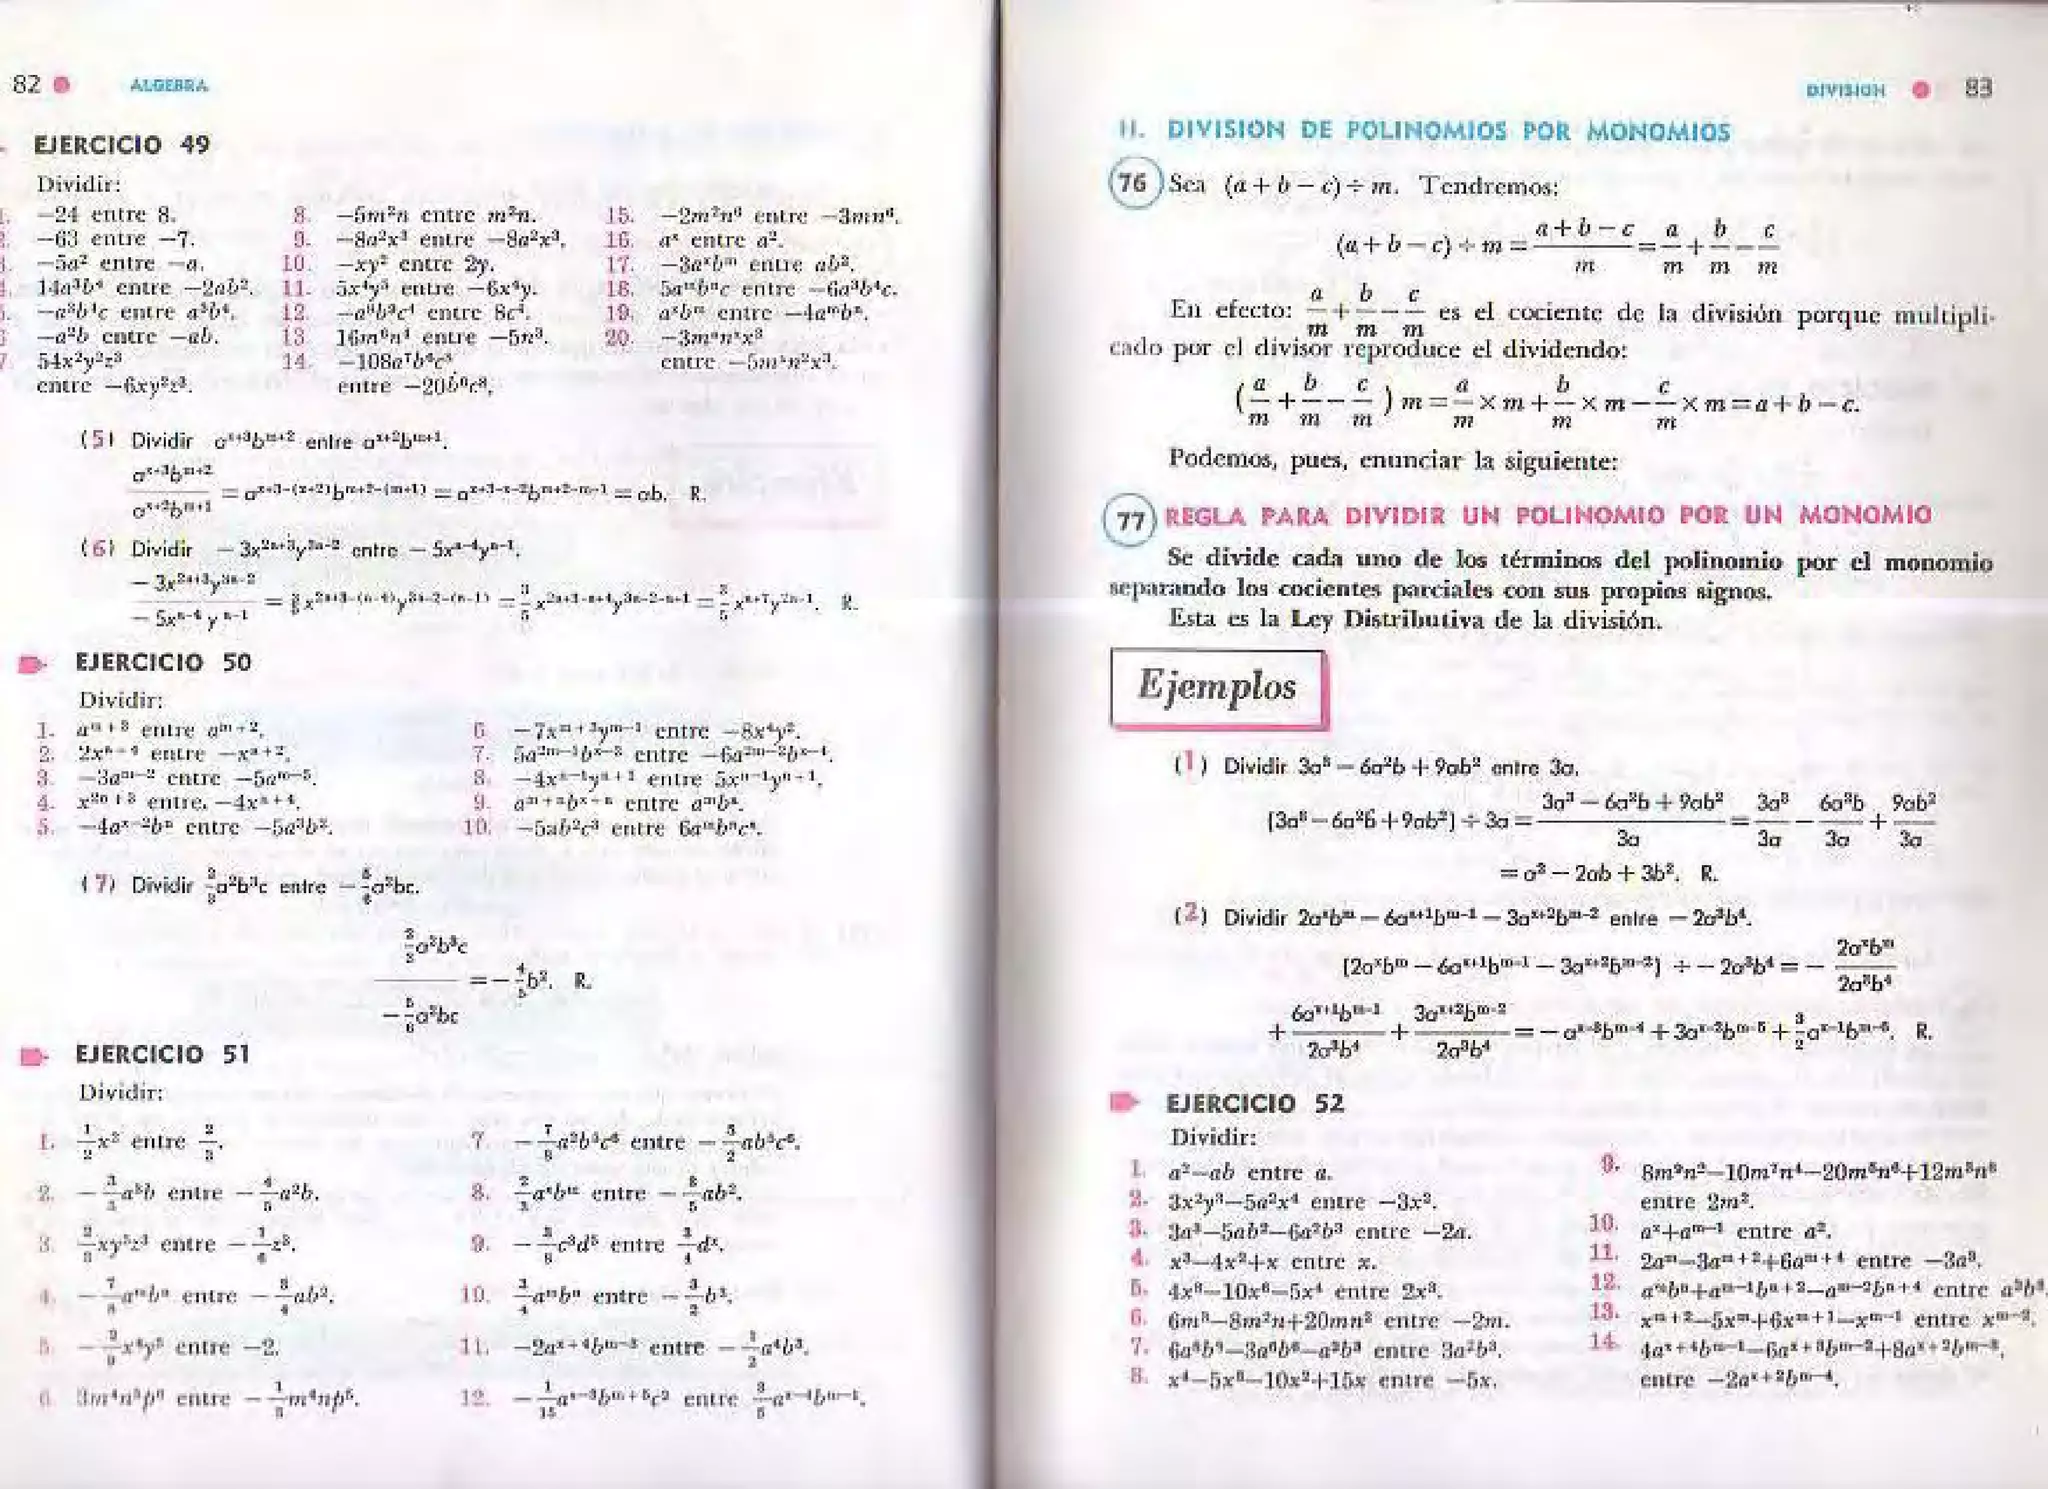 82 • ALGEBRA
EJERCICIO 49
Dividir:
−24 entre 8.
−63 entre −7.
−5a² entre −a.
14a³b⁴ entre −2ab².
−a³b⁴c entre a³b⁴.
−a²b entre −ab.
54x²y²z³
entre −6xy²z³.
8. −5m²n entre m²n.
9. −8a²x³ entre −8a²x³.
10. −xy² entre 2y.
11. 5x⁴y⁵ entre −6x⁴y.
12. −a⁸b⁹c⁴ entre 8c⁴.
13. 16m⁶n⁴ entre −5n³.
14. −108a⁷b⁶c⁸
entre −20b⁶c⁸.
15. −2m²n⁶ entre −3mn⁶.
16. aˣ entre a².
17. −3aˣbᵐ entre ab².
18. 5aᵐbⁿc entre −6a³b⁴c.
19. aˣbᵐ entre −4aᵐbⁿ.
20. −3mᵃnˣx³
entre −5mˣn²x³.
(5) Dividir aˣ⁺³bᵐ⁺² entre aˣ⁺²bᵐ⁺¹.
aˣ⁺³bᵐ⁺² / aˣ⁺²bᵐ⁺¹ = aˣ⁺³⁻⁽ˣ⁺²⁾bᵐ⁺²⁻⁽ᵐ⁺¹⁾ = aˣ⁺³⁻ˣ⁻²bᵐ⁺²⁻ᵐ⁻¹ = ab. R.
(6) Dividir − 3x²ᵃ⁺³y³ᵃ⁻² entre − 5xᵃ⁻⁴yᵃ⁻¹.
− 3x²ᵃ⁺³y³ᵃ⁻² / − 5xᵃ⁻⁴yᵃ⁻¹ = 3/5 x²ᵃ⁺³⁻⁽ᵃ⁻⁴⁾y³ᵃ⁻²⁻⁽ᵃ⁻¹⁾ = 3/5 x²ᵃ⁺³⁻ᵃ⁺⁴y³ᵃ⁻²⁻ᵃ⁺¹ = 3/5 xᵃ⁺⁷y²ᵃ⁻¹. R.
EJERCICIO 50
Dividir:
1. aᵐ⁺³ entre aᵐ⁺².
2. 2xᵃ⁺⁴ entre −xᵃ⁺².
3. −3aᵐ⁻² entre −5aᵐ⁻⁵.
4. x²ⁿ⁺³ entre −4xⁿ⁺⁴.
5. −4aˣ⁻²bⁿ entre −5a³b².
6. −7xᵐ⁺³yᵐ⁻¹ entre −8x⁴y².
7. 5a²ᵐ⁻¹bˣ⁻³ entre −6a²ᵐ⁻²bˣ⁻⁴.
8. −4xⁿ⁻¹yⁿ⁺¹ entre 5xⁿ⁻¹yⁿ⁺¹.
9. aᵐ⁺ⁿbˣ⁺ᵃ entre aᵐbᵃ.
10. −5ab²c³ entre 6aᵐbⁿcˣ.
(7) Dividir 2/3 a²b³c entre − 5/6 a²bc.
2/3 a²b³c / − 5/6 a²bc = − 4/5 b². R.
EJERCICIO 51
Dividir:
1. 1/2 x² entre 2/3.
2. − 3/5 a³b entre − 4/5 a²b.
3. 2/3 xy⁵z³ entre − 1/6 z³.
4. − 7/8 aᵐbⁿ entre − 3/4 ab².
5. − 2/9 x⁴y⁵ entre −2.
6. 3m⁴n⁵p⁶ entre − 1/3 m⁴np⁵.
7. − 7/8 a²b⁵c⁶ entre − 5/2 ab⁵c⁶.
8. 2/3 aˣbᵐ entre − 3/5 ab².
9. − 3/8 c³d⁵ entre 3/4 dˣ.
10. 3/4 aᵐbⁿ entre − 3/2 b³.
11. −2aˣ⁺⁴bᵐ⁻³ entre − 1/2 a⁴b³.
12. − 1/15 aˣ⁻³bᵐ⁺⁵c² entre 3/5 aˣ⁻⁴bᵐ⁻¹.
DIVISION • 83
II. DIVISION DE POLINOMIOS POR MONOMIOS
76 Sea (a + b − c) ÷ m. Tendremos:
(a + b − c) ÷ m = a + b − c / m = a/m + b/m − c/m
En efecto: a/m + b/m − c/m es el cociente de la división porque multipli-
cado por el divisor reproduce el dividendo:
(a/m + b/m − c/m) m = a/m × m + b/m × m − c/m × m = a + b − c.
Podemos, pues, enunciar la siguiente:
77 REGLA PARA DIVIDIR UN POLINOMIO POR UN MONOMIO
Se divide cada uno de los términos del polinomio por el monomio
separando los cocientes parciales con sus propios signos.
Esta es la Ley Distributiva de la división.
Ejemplos
(1) Dividir 3a³ − 6a²b + 9ab² entre 3a.
(3a³ − 6a²b + 9ab²) ÷ 3a = 3a³ − 6a²b + 9ab² / 3a = 3a³/3a − 6a²b/3a + 9ab²/3a
= a² − 2ab + 3b². R.
(2) Dividir 2aˣbᵐ − 6aˣ⁺¹bᵐ⁻¹ − 3aˣ⁺²bᵐ⁻² entre − 2a³b⁴.
(2aˣbᵐ − 6aˣ⁺¹bᵐ⁻¹ − 3aˣ⁺²bᵐ⁻²) ÷ − 2a³b⁴ = − 2aˣbᵐ / 2a³b⁴
+ 6aˣ⁺¹bᵐ⁻¹ / 2a³b⁴ + 3aˣ⁺²bᵐ⁻² / 2a³b⁴ = − aˣ⁻³bᵐ⁻⁴ + 3aˣ⁻²bᵐ⁻⁵ + 3/2 aˣ⁻¹bᵐ⁻⁶. R.
EJERCICIO 52
Dividir:
1. a²−ab entre a.
2. 3x²y³−5a²x⁴ entre −3x².
3. 3a³−5ab²−6a²b³ entre −2a.
4. x³−4x²+x entre x.
5. 4x⁸−10x⁶−5x⁴ entre 2x³.
6. 6m³−8m²n+20mn² entre −2m.
7. 6a⁸b⁸−3a⁶b⁶−a²b³ entre 3a²b³.
8. x⁴−5x³−10x²+15x entre −5x.
9. 8m⁹n²−10m⁷n⁴−20m⁵n⁶+12m³n⁸
entre 2m².
10. aˣ+aᵐ⁻¹ entre a².
11. 2aᵐ−3aᵐ⁺²+6aᵐ⁺⁴ entre −3a³.
12. aᵐbⁿ+aᵐ⁻¹bⁿ⁺²−aᵐ⁻²bⁿ⁺⁴ entre a²b³.
13. xᵐ⁺²−5xᵐ+6xᵐ⁺¹−xᵐ⁻¹ entre xᵐ⁻².
14. 4aˣ⁺⁴bᵐ⁻¹−6aˣ⁺³bᵐ⁻²+8aˣ⁺²bᵐ⁻³
entre −2aˣ⁺²bᵐ⁻⁴.